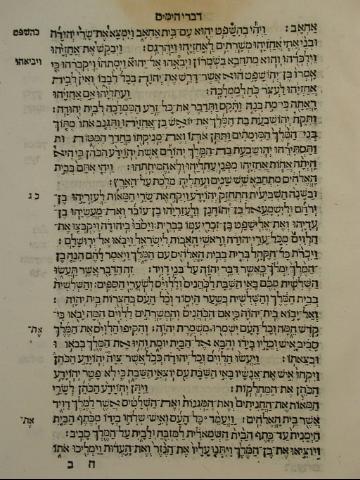 דברי הימים
אחאב: ויהי בהשפט יהוא עם בית אחאב וימצא את שרי יהודה
ובני אחי אחזיהו משרתים לאחזיהו ויהרגם: ויבקש את אחזיהו
וילכדהו והוא מתחבא בשמרון ויבאהו אל יהוא וימתהו ויקברהו כי
אמרו בן יהושפט הוא אשר דרש את יהוה בכל לבבו ואין לבית
אחזיהו לעצר כח לממלכה: ועתליהו אם אחזיהו
ראתה כי מת בנה ותקם ותדבר את כל זרע הממלכה לבית יהודה:
ותקח יהושבעת בת המלך את יואש בן אחזיהו ותגנב אתו מתוך
בני המלך המומתים ותתן אתו ואת מיניקתו בחדר המטות
ותסתירהו יהושבעת בת המלך יהורם אשת יהוידע הכהן כי היא
היתה אחות אחזיהו מפני עתליהו ולא המיתתהו: ויהי אתם בבית
האלהים מתחבא שש שנים ועתליה מלכת על הארץ:
ובשנה השביעית התחזק יהוידע ויקח את שרי המאות לעזריהו בן
ירחם ולישמעאל בן יהוחנן ולעזריהו בן עובד ואת מעשיהו בן
עדיהו ואת אלישפט בן זכרי עמו בברית: ויסבו ביהודה ויקבצו את
הלוים מכל ערי יהודה וראשי האבות לישראל ויבאו אל ירושלם:
ויכרת כל הקהל ברית בבית האלהים עם המלך ויאמר להם הנה בן
המלך ימלך כאשר דבר יהוה על בני דויד: זה הדבר אשר תעשו
השלשית מכם באי השבת לכהנים וללוים לשערי הספים: והשלשית
בבית המלך והשלשית בשער היסוד וכל העם בחצרות בית יהוה:
ואל יבוא בית יהוה כי אם הכהנים והמשרתים ללוים המה יבאו כי
קדש המה וכל העם ישמרו משמרת יהוה: והקיפו הלוים את המלך
סביב איש וכליו בידו והבא אל הבית יומת והיו את המלך בבאו
ובצאתו: ויעשו הלוים וכל יהודה ככל אשר צוה יהוידע הכהן
ויקחו איש את אנשיו באי השבת עם יוצאי השבת כי לא פטר יהוידע
הכהן את המחלקות: ויתן יהוידע הכהן לשרי
המאות את החניתים ואת המגנות ואת השלטים אשר למלך דויד
אשר בית האלהים: ויעמד את כל העם ואיש שלחו בידו מכתף הבית
הימנית עד כתף הבית השמאלית למזבח ולבית על המלך סביב:
ויוציאו את בן המלך ויתנו עליו את הנזר ואת העדות וימליכו אותו
ח ב
כהשפט
ויביאהו
כג
את־
את־